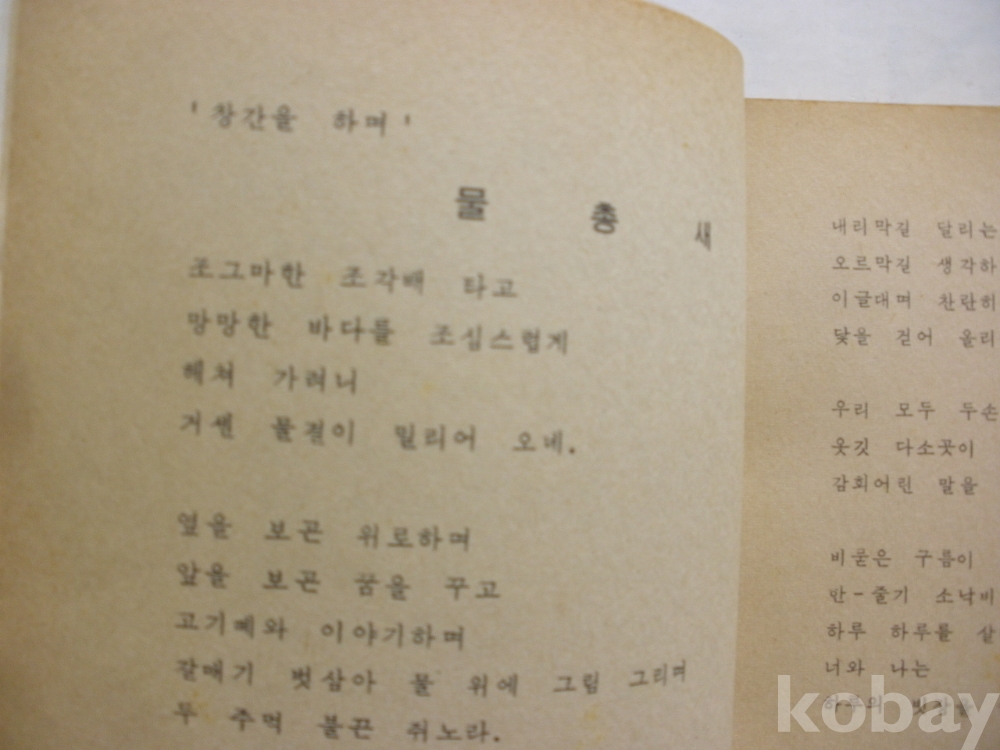 '창간을 하며'
물 총 새
조그마한 조각배 타고
망망한 바다를 조심스럽게
헤쳐 가려니
거센 물결이 밀리어 오네.
옆을 보곤 위로하며
앞을 보곤 꿈을 꾸고
고기떼와 이야기하며
갈매기 벗삼아 물 위에 그림 그리며
두 주먹 불끈 쥐노라.
내리막길 달리는
오르막길 생각하
이글대며 찬란히
닻을 걷어 올리
우리 모두 두손
옷깃 다소곳이
감회어린 말을
비묻은 구름이
한-줄기 소낙비
하루 하루를 살
너와 나는
kobay